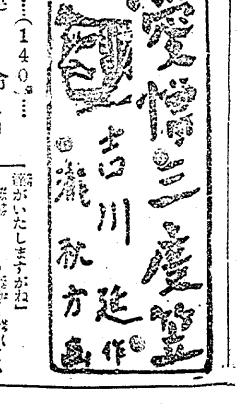 愛憎三度笠
吉川延作
瀧秋方画
…(140)…
謹がいたしますがね」